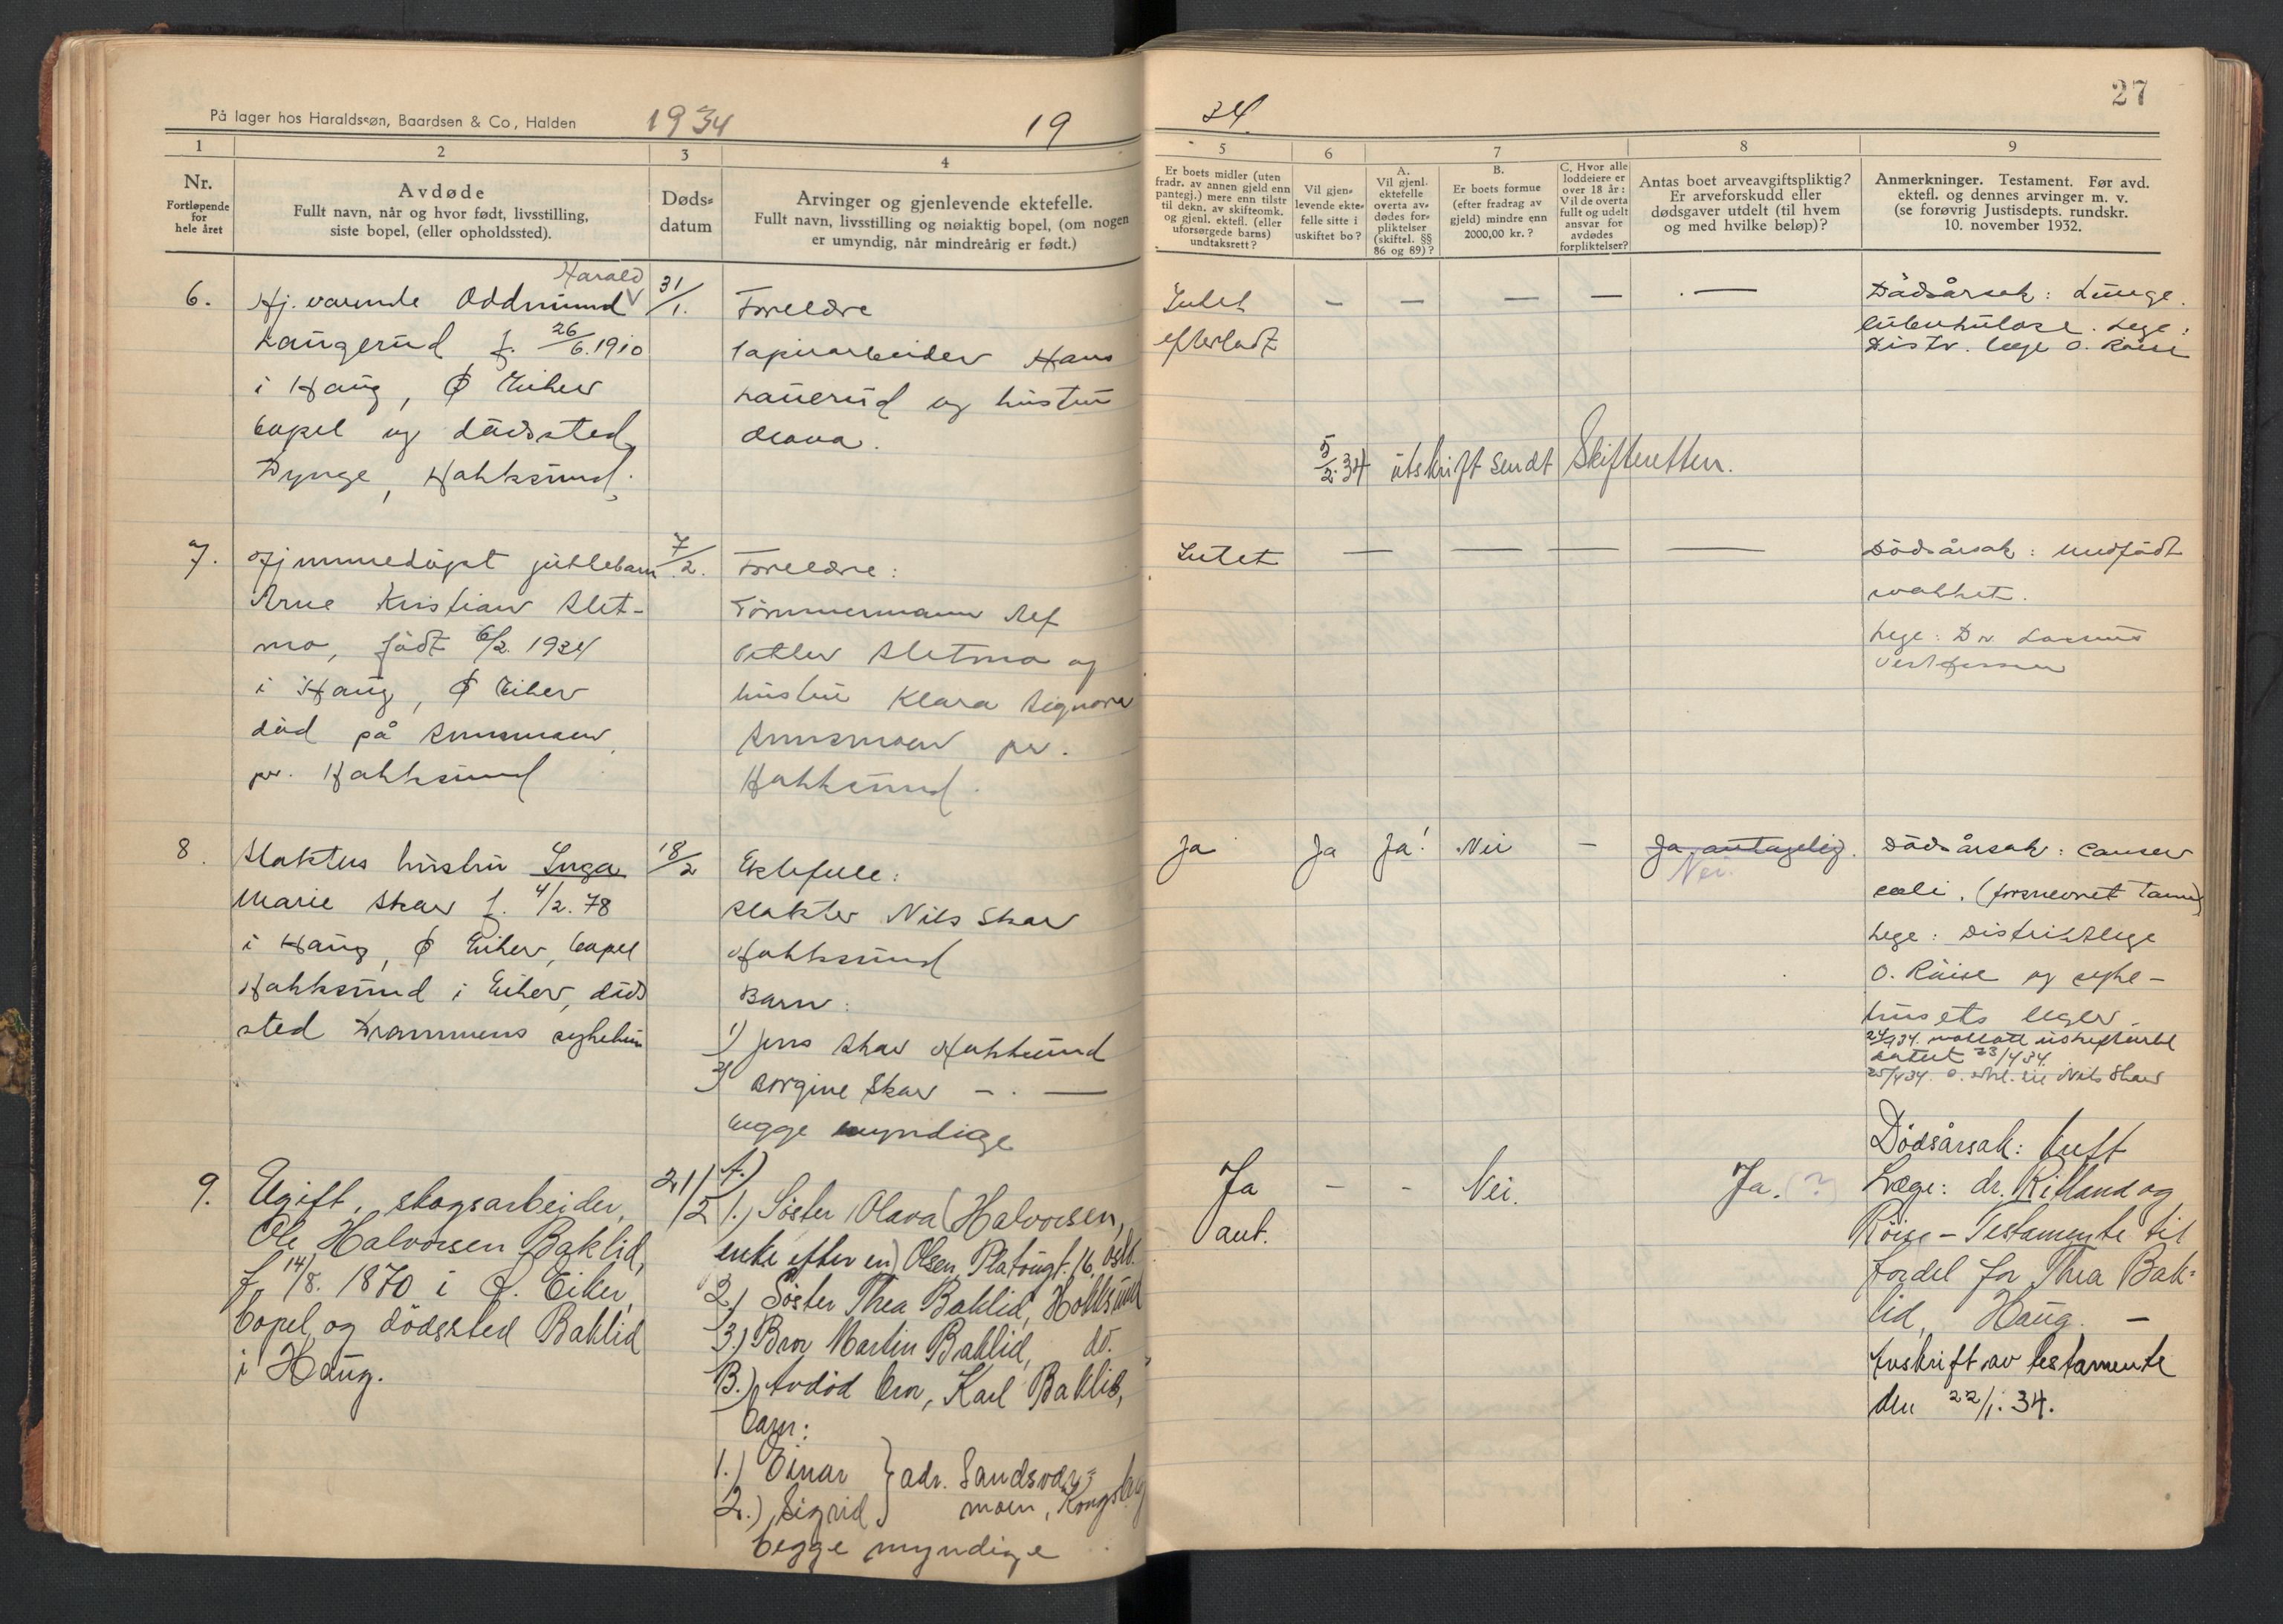 På lager hos Haraldssøn, Baardsen & Co, Halden
1934
19
1
2
3
4
Nr.
Fortløpende
for
hele året
Avdøde
Fullt navn, når og hvor født, livsstilling,
siste bopel, (eller opholdssted).
Døds-
datum
Arvinger og gjenlevende ektefelle.
Fullt navn, livsstilling og nøiaktig bopel, (om nogen
er umyndig, når mindreårig er født.)
6.
Harald
Hj. værende Oddmund
Laugerud f. 26/6.1910
i Haug, Ø Eiker
bopel og dødssted
Dynge, Hokksund.
31/1.
Foreldre
Papirarbeider Hans
Laugerud og hustru
7.
Hjemmedøpt pikkebarn
Arne Kristian Slet-
mo, født 6/2. 1934
i Haug, Ø Eiker
död på Smusmoen
pr. Hokksund
7/2.
Foreldre:
Tömmermann Alf
Sletmo og
hustru Klara Signora
Smusmoen pr.
Hokksund.
8.
Slakters hustru Inga
Marie Skar f. 4/2. 78
i Haug, Ø Eiker, bopel
Hokksund i Eiker, döds
sted Drammens sykehus
18/2
Ektefelle:
slakter Nils Skar
Hokksund
Barn:
1) Jens Skar Hokksund
2) Borgine Skar — . —
begge myndige
9.
Ugift, skogsarbeider,
Ole Halvorsen Baklid,
f. 14/8. 1870 i Ø. Eiker,
bopel og dödssted Baklid
i Haug.
21/2
A.)
1.) Söster Olava (Halvorsen,
enke efter en) Olsen, Platougt. 16, Oslo.
2.) Söster Thea Baklid, Hokksund
3.) Bror Martin Baklid, do.
B.) Avdöd bror, Karl Baklids,
barn:
1.) Einar } adr. Sandsvær=
2.) Sigrid } moen, Kongsberg
begge myndige
34.
27
5
6
7
8
9
Er boets midler (uten
fradr. av annen gjeld enn
pantegj.) mere enn tilstr
til dekn. av skifteomk.
og gjenl. ektefl. (eller
uforsørgede barns)
undtaksrett?
Vil gjen-
levende ekte-
felle sitte i
uskiftet bo?
A.
Vil gjenl.
ektefelle
overta av-
dødes for-
pliktelser
(skiftel. §§
86 og 89)?
B.
Er boets formue
(efter fradrag av
gjeld) mindre enn
2000,00 kr.?
C. Hvor alle
loddeiere er
over 18 år:
Vil de overta
fullt og udelt
ansvar for
avdødes
forpliktelser?
Antas boet arveavgiftspliktig?
Er arveforskudd eller
dødsgaver utdelt (til hvem
og med hvilke beløp)?
Anmerkninger. Testament. Før avd.
ektefl. og dennes arvinger m. v.
(se forøvrig Justisdepts. rundskr.
10. november 1932.
Intet — — — — —
efterladt
Dödsårsak: Lunge
tuberkulose. Lege:
Distr. lege O. Röise
5/2.34 utskrift sendt Skifteretten.
Intet — — — — —
Dödsårsak: Medfödt
svakhet.
Lege: Dr.
Ja Ja Ja! Nei — Ja antagelig.
Nei.
Dödsårsak: Cancer
coli. (forsnevret tarm)
Lege: Distriktslege
O. Röise og syke-
husets leger.
24/4 34. mottatt uskifteatt
datert 23/4 34.
25/4 34. Nils Skar
Ja — — Nei. Ja. (?)
ant.
Dödsårsak:
Læge: dr. Ritland og
Röise - Testamente til
fordel for Thea Bak=
lid, Haug. —
Avskrift av testamente
den 22/1. 34.